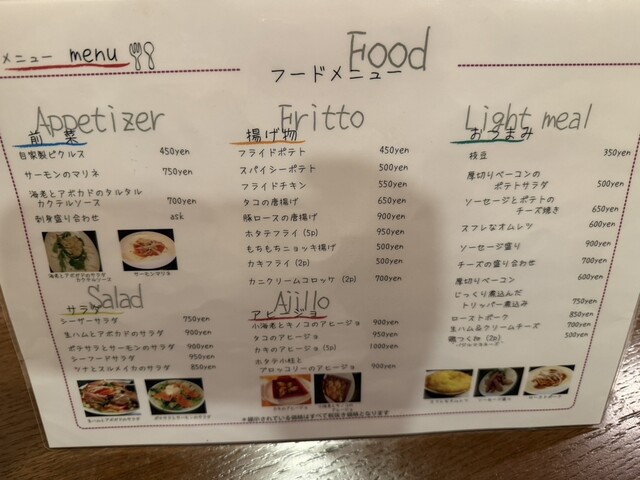 メニュー menu
Food
フードメニュー
Appetizer
前菜
自家製ピクルス 450yen
サーモンのマリネ 750yen
海老とアボカドのタルタル
カクテルソース 700yen
刺身盛り合わせ ask
海老とアボカドのサラダ
カクテルソース
サーモンマリネ
Salad
サラダ
シーザーサラダ 750yen
生ハムとアボカドのサラダ 900yen
ポテサラとサーモンのサラダ 900yen
シーフードサラダ 950yen
ツナとスルメイカのサラダ 850yen
生ハムとアボカドのサラダ
ポテサラとサーモンのサラダ
Fritto
揚げ物
フライドポテト 450yen
スパイシーポテト 500yen
フライドチキン 550yen
タコの唐揚げ 650yen
豚ロースの唐揚げ 900yen
ホタテフライ (5p) 950yen
もちもちニョッキ揚げ 500yen
カキフライ (2p) 500yen
カニクリームコロッケ (2p) 700yen
Ajillo
アヒージョ
小海老とキノコのアヒージョ 900yen
タコのアヒージョ 950yen
カキのアヒージョ (5p) 1000yen
ホタテ小柱と
ブロッコリーのアヒージョ 900yen
＊掲示されている価格はすべて税抜き価格となります
Light meal
おつまみ
枝豆 350yen
厚切りベーコンの
ポテトサラダ 500yen
ソーセージとポテトの
チーズ焼き 650yen
スフレなオムレツ 600yen
ソーセージ盛り 900yen
チーズの盛り合わせ 700yen
厚切りベーコン 600yen
じっくり煮込んだ
トリッパー煮込み 750yen
ローストポーク 850yen
生ハム&クリームチーズ 700yen
500yen
スフレなオムレツ
ソーセージ盛り
ローストポーク